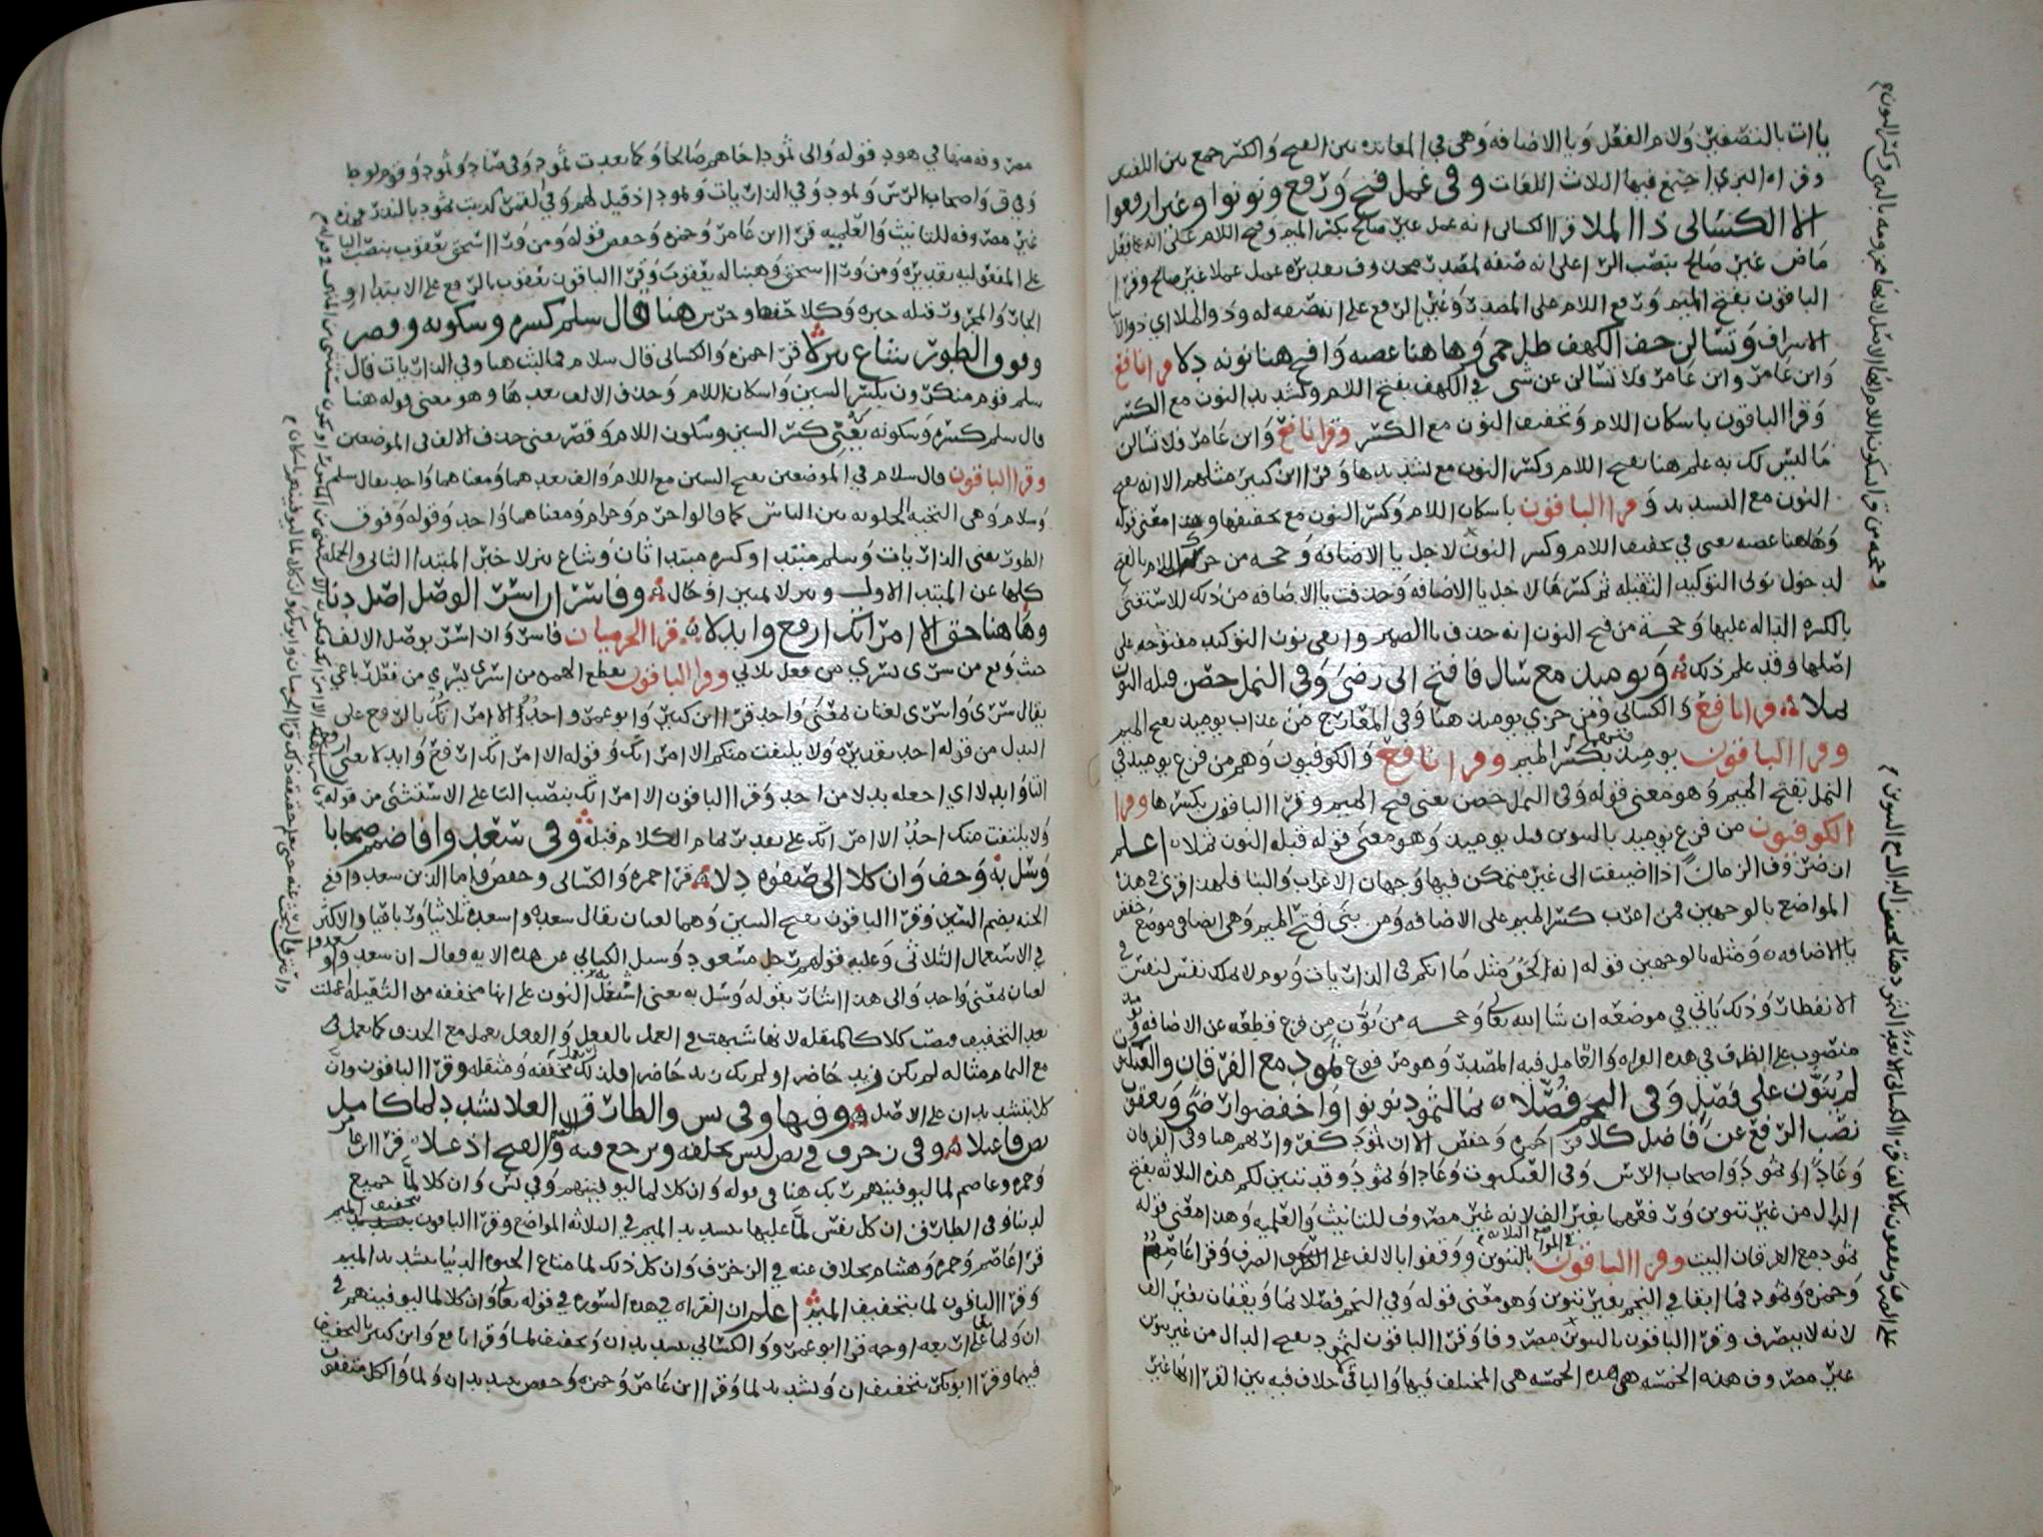 يا ات بالتصغير ولام الفعل ويا الاضافه وهي في المعايده بين الفتح والكسر جمع بين اللغتين
وقراه البزي اجتمع فيها الثلاث اللغات وفي عمل فتح ورفع ونونوا وغير ارفعوا
الا الكسائي ذا الملا قرا الكسائي انه عمل غير صالح بكسر الميم وفتح اللام على انه فعل
ماض غير صالح بنصب الرا على انه صفه لمصدر محذوف تقديره عمل عملا غير صالح وقرا
الباقون بفتح الميم ورفع اللام على المصدر وغير الرفع على انه صفه له وذو الملا اي ذو الا
الاشراف وتسالن خف الكهف ظل حمى وها هنا غصنه وافتح هنا نونه دلا قرا نافع
وابن عامر وابن عامر فلا تسالن عن شي في الكهف بفتح اللام وتشديد النون مع الكسر
وقرا الباقون باسكان اللام وتخفيف النون مع الكسر وقرا نافع وابن عامر فلا تسالن
ما ليس لك به علم هنا بفتح اللام وكسر النون مع تشديدها وقرا ابن كثير مثلهم الا انه يفتح
النون مع التشديد وقرا الباقون باسكان اللام وكسر النون مع تخفيفها وهذا معنى قوله
وها هنا غصنه يعني في تخفيف اللام وكسر النون لاجل يا الاضافه وحجه من حرك اللام بالفتح
لدخول نوني التوكيد الثقيله ثم كسرها لاجل يا الاضافه وحذفت يا الاضافه من ذلك للاستغنى
بالكسره الداله عليها وحجه من فتح النون انه حذف يا الضمير وابقى نون التوكيد مفتوحه على
اصلها وقد علم ذلك ويوميذ مع سال فافتح اتى رضى وفي النمل حصن قبله النون
ثملا قرا نافع والكسائي ومن خزي يوميذ هنا وفي المعارج من عذاب يوميذ بفتح الميم
وقرا الباقون يوميذ بكسر الميم فيهما وقرا نافع والكوفيون وهم من فزع يوميذ في
النمل بفتح الميم وهو معنى قوله وفي النمل حصن يعني فتح الميم وقرا الباقون بكسرها وقرا
الكوفيون من فزع يوميذ بالتنوين قبل يوميذ وهو معنى قوله قبله النون ثملا اعلم
ان ظروف الزمان اذا اضيفت الى غير متمكن فيها وجهان الاعراب والبنا فلهذا قرى في هذا
المواضع بالوجهين فمن اعرب كسر الميم على الاضافه ومن بنى فتح الميم وهي ايضا في موضع خفض
بالاضافه ومثله بالوجهين قوله انه لحق مثل ما انكم في الذاريات ويوم لا تملك نفس لنفس في
الانفطار وذلك ياتي في موضعه ان شا الله تعالى وحجه من نون من فزع قطعه عن الاضافه
منصوب على الظرف في هذه القراه والعامل فيه المصدر وهو من فزع ثمود مع الفرقان والعنكبوت
لم ينون على فصل وفي النجم فصلا نما لثمود نونوا واخفضوا رضى ويعقوب
نصب الرفع عن فاضل كلا قرا حمزه وحفص الا ان ثمود كفروا ربهم هنا وفي الفرقان
وعادا وثمود واصحاب الرس وفي العنكبوت وعادا وثمود وقد تبين لكم هذه الثلاثه بفتح
الدال من غير تنوين ووقفهما بغير الف لانه غير مصروف للتانيث والعلميه وهذا معنى قوله
ثمود مع الفرقان البيت وقرا الباقون بالتنوين في المواضع الثلاثه ووقفوا بالالف على الصرف وقرا عاصم
وحمزه وثمود فما ابقى في النجم بغير تنوين وهو معنى قوله وفي النجم فصلا نما ويقفان بغير الف
لانه لا ينصرف وقرا الباقون بالتنوين مصروفا وقرا الباقون لثمود بفتح الدال من غير تنوين
غير مصروف هذه الخمسه هي هذه الخمسه هي المختلف فيها والباقي خلاف فيه بين القرا انها غير
مصروفه منها في هود قوله والى ثمود اخاهم صالحا وكما بعدت ثمود وفي ص وعاد وثمود وقوم لوط
وفي ق واصحاب الرس وثمود وفي الذاريات وثمود اذ قيل لهم وفي القمر كذبت ثمود بالنذر
غير مصروفه للتانيث والعلميه قرا ابن عامر وحمزه وحفص قوله ومن ورا اسحق يعقوب بنصب البا
على المفعوليه تقديره ومن ورا اسحق وهبنا له يعقوب وقرا الباقون يعقوب بالرفع على الابتدا او
الجار والمجرور قبله خبره وكلا حفها وحز من هنا قال سلم كسره وسكونه وقصر
وفوق الطور شاع تنزلا قرا حمزه والكسائي قال سلام فما لبث هنا وفي الذاريات قال
سلم قوم منكرون بكسر السين واسكان اللام وحذف الالف بعدها وهو معنى قوله هنا
قال سلم كسره وسكونه يعني كسر السين وسكون اللام وقصر يعني حذف الالف في الموضعين
وقرا الباقون قال سلام في الموضعين بفتح السين مع اللام والف بعدهما ومعناهما واحد يقال سلم
وسلام وهي التحيه كما قالوا حرم وحرام ومعناهما واحد وقوله وفوق
الطور يعني الذاريات وسلم مبتدا وكسره مبتدا ثان وشاع تنزلا خبر المبتدا الثاني والجمله
كلها عن المبتدا الاول وتنزلا تمييز او حال وفاسر ان اسر الوصل اصل دنا
وها هنا حق الا امراتك ارفع وابدلا قرا الحرميان فاسر وان اسر بوصل الالف
حيث وقع من سرى يسري من فعل ثلاثي وقرا الباقون بقطع الهمزه من اسرى يسري من فعل رباعي
يقال سرى واسرى لغتان بمعنى واحد قرا ابن كثير وابو عمرو احد الا امراتك بالرفع على
البدل من قوله احد تقديره ولا يلتفت منكم الا امراتك وقوله الا امراتك ارفع وابدلا يعني ارفع
التا وابدلا اي اجعله بدلا من احد وقرا الباقون الا امراتك بنصب التا على الاستثنى من قوله
ولا يلتفت منكم احد الا امراتك على تقدير تمام الكلام قبله وفي سعدوا فاضمم صحابا
وسل به وخف وان كلا الى صفوه دلا قرا حمزه والكسائي وحفص واما الذين سعدوا ففي
الجنه بضم السين وقرا الباقون بفتح السين وهما لغتان يقال سعده واسعده ثلاثيا ورباعيا والاكثر
في الاستعمال الثلاثي وعليه قولهم رجل مسعود وسيل الكسائي عن هذه الايه فقال ان سعد واسعد
لغتان بمعنى واحد والى هذا اشار بقوله وسل به يعني اشتغل النون على انها مخففه من الثقيله عملت
بعد التخفيف فنصب كلا كالمثقله لانها شبهت في العمل بالفعل والفعل يعمل مع الحذف كما يعمل في
مع التمام مثاله لم يكن زيد حاضرا ولم يك زيد حاضرا فلذلك ان تعمل مخففه ومثقله وقرا الباقون وان
كلا بتشديد ان على الاصل وفيها وفي يس والطارق العلا يشدد لما كامل
نص فاعتلا وفي زخرف في نص لسن بخلفه ويرجع فيه الضم والفتح اذ علا قرا ابن عا
وحمزه وعاصم لما ليوفينهم ربك هنا في قوله وان كلا لما ليوفينهم وفي يس وان كلا لما جميع
لدينا وفي الطارق ان كل نفس لما عليها بتشديد الميم في الثلاثه المواضع وقرا الباقون بتخفيف الميم
قرا عاصم وحمزه وهشام بخلاف عنه في الزخرف وان كل ذلك لما متاع الحيوه الدنيا بتشديد الميم
وقرا الباقون لما بتخفيف الميم اعلم ان القراه في هذه السوره في قوله تعالى وان كلا لما ليوفينهم في
ان ولما على اربعه اوجه قرا ابو عمرو والكسائي بتشديد ان وتخفيف لما وقرا نافع وابن كثير بالتخفيف
فيهما وقرا ابو بكر بتخفيف ان وتشديد لما وقرا ابن عامر وحمزه وحفص بتشديد ان ولما والكل متفقون